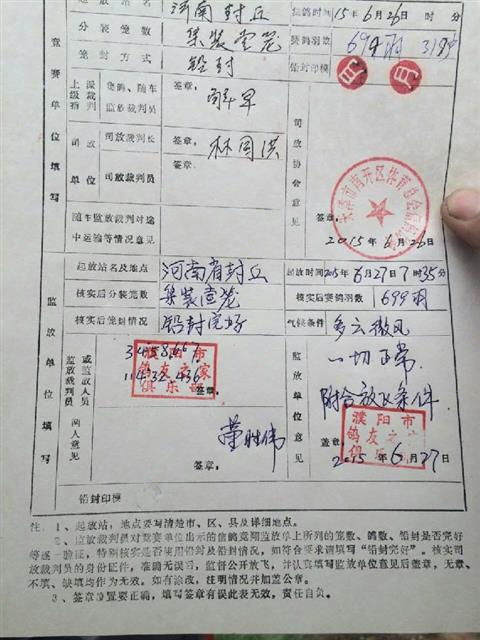 放站名 河南封丘 集鸽时间 15年6月26日 时 分
分装笼数 集装壹笼 赛鸽羽数 699羽
笼封方式 铅封 铅封印模
竞赛单位填写
上级派裁判指 集鸽、随车监放裁判员 签章:
司放单位 司放裁判长 签章: 林同洪
司放裁判员 签章:
随车监放裁判对途中运输等情况意见
司放协会意见
签章:
2015年6月26日
起放站名及地点 河南省封丘 起放时间 2015年6月27日7时35分
核实后分装笼数 集装壹笼 核实后赛鸽羽数 699羽
核实后笼封情况 铅封完好 气候条件 多云微风
监放单位填写
监放裁判员或监放人员两人意见
濮阳市
鸽友之家
俱乐部
签章:
荣胜伟
签章:
监放单位意见
一切正常.
附合放飞条件
濮阳市
鸽友之
俱乐
盖章:
2015年6月27日
铅封印模
注:1、起放站,地点要写清楚市、区、县及详细地点。
2、监放裁判员对竞赛单位出示的信鸽竞翔监放单上所列的笼数、鸽数、铅封是否完好
等逐一验证,特别核实是否使用铅封及铅封情况,如符合要求请填写“铅封完好”。核实司
放裁判员的身份证件,准确无误后,监督公开放飞,并认真填写监放单位意见后盖章,无章、
不填、缺填均作为无效。如有涂改,注明情况并加盖公章。
3、签章位置要正确,填写签章有误此表无效,责任自负。